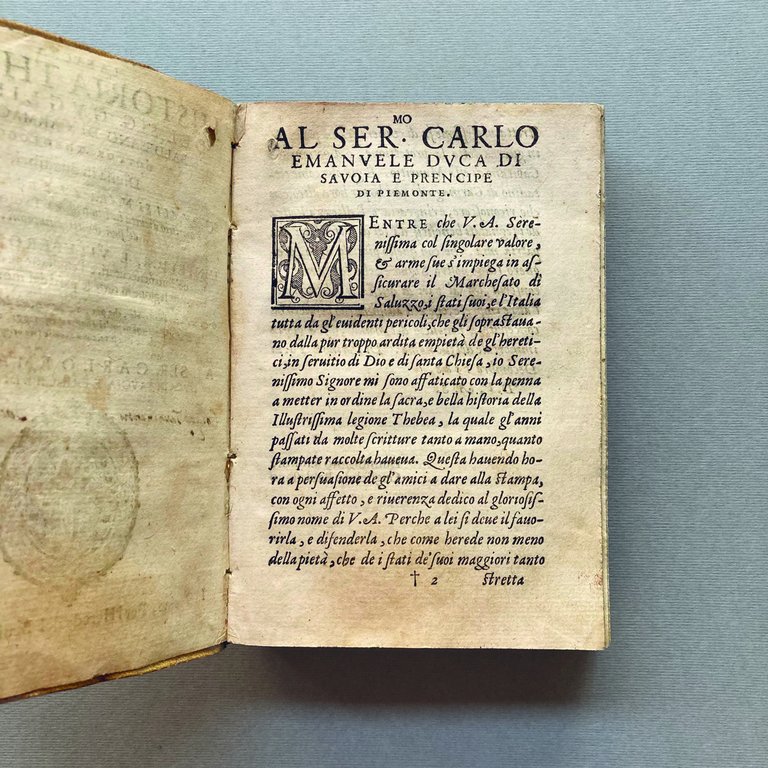 AL SER.MO CARLO
EMANVELE DVCA DI
SAVOIA E PRENCIPE
DI PIEMONTE.
MENTRE che V. A. Sere-
niſſima col ſingolare valore,
& arme ſue s'impiega in aſ-
ſicurare il Marcheſato di
Saluzzo, i ſtati ſuoi, e l'Italia
tutta da gl'euidenti pericoli, che gli sopraſtaua-
no dalla pur troppo ardita empietà de gl'hereti-
ci, in ſeruitio di Dio e di santa Chieſa, io Sere-
niſſimo Signore mi ſono affaticato con la penna
a metter in ordine la ſacra, e bella hiſtoria della
Illuſtriſſima legione Thebea, la quale gl'anni
paſſati da molte ſcritture tanto a mano, quanto
ſtampate raccolta haueua. Queſta hauendo ho-
ra a perſuaſione de gl'amici a dare alla ſtampa,
con ogni affetto, e riuerenza dedico al glorioſiſ-
ſimo nome di V. A. Perche a lei ſi deue il fauo-
rirla, e difenderla, che come herede non meno
della pietà, che de i ſtati de' ſuoi maggiori tanto
† 2 ſtretta